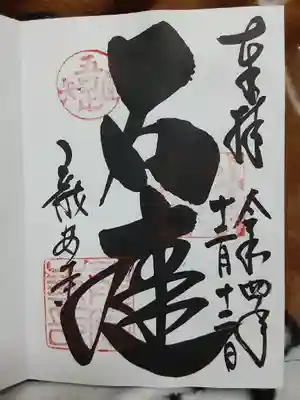 奉拝
令和四年
十二月十二日
石庭
龍安寺